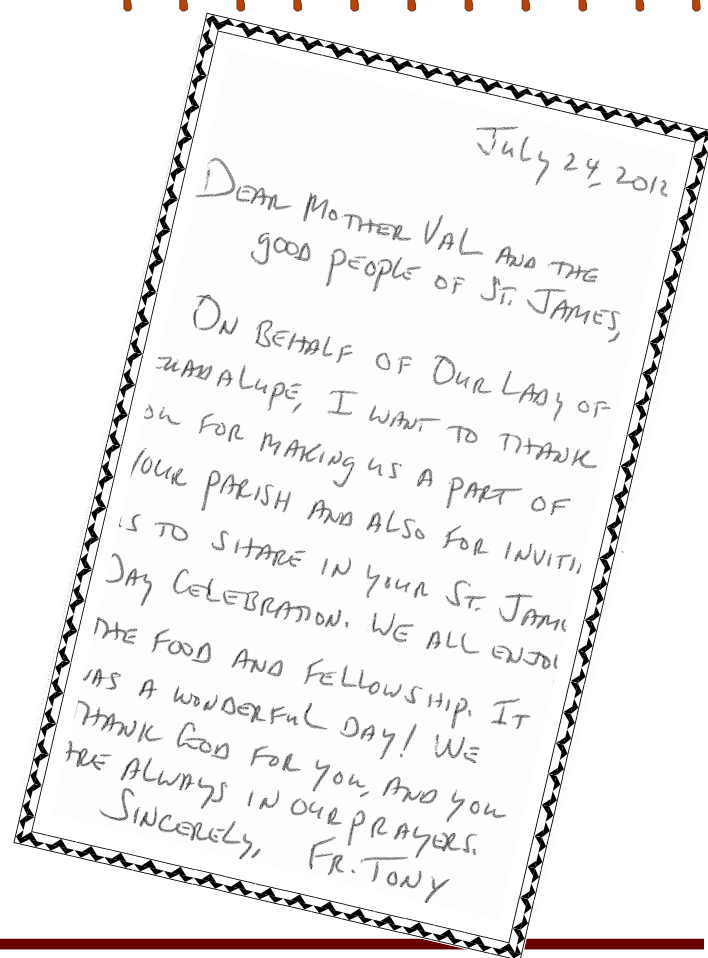 July 24, 2012
DEAR MOTHER VAL AND THE
good PEOPLE OF ST. JAMES,
ON BEHALF OF OUR LADY OF
UADALUPE, I WANT TO THANK
OU FOR MAKING US A PART OF
YOUR PARISH AND ALSO FOR INVITI
S TO SHARE IN YOUR ST. JAM
DAY CELEBRATION. WE ALL ENJO
THE FOOD AND FELLOWSHIP. IT
AS A WONDERFUL DAY! WE
THANK GOD FOR YOU, AND YOU
ARE ALWAYS IN OUR PRAYERS.
SINCERELY, FR. TONY